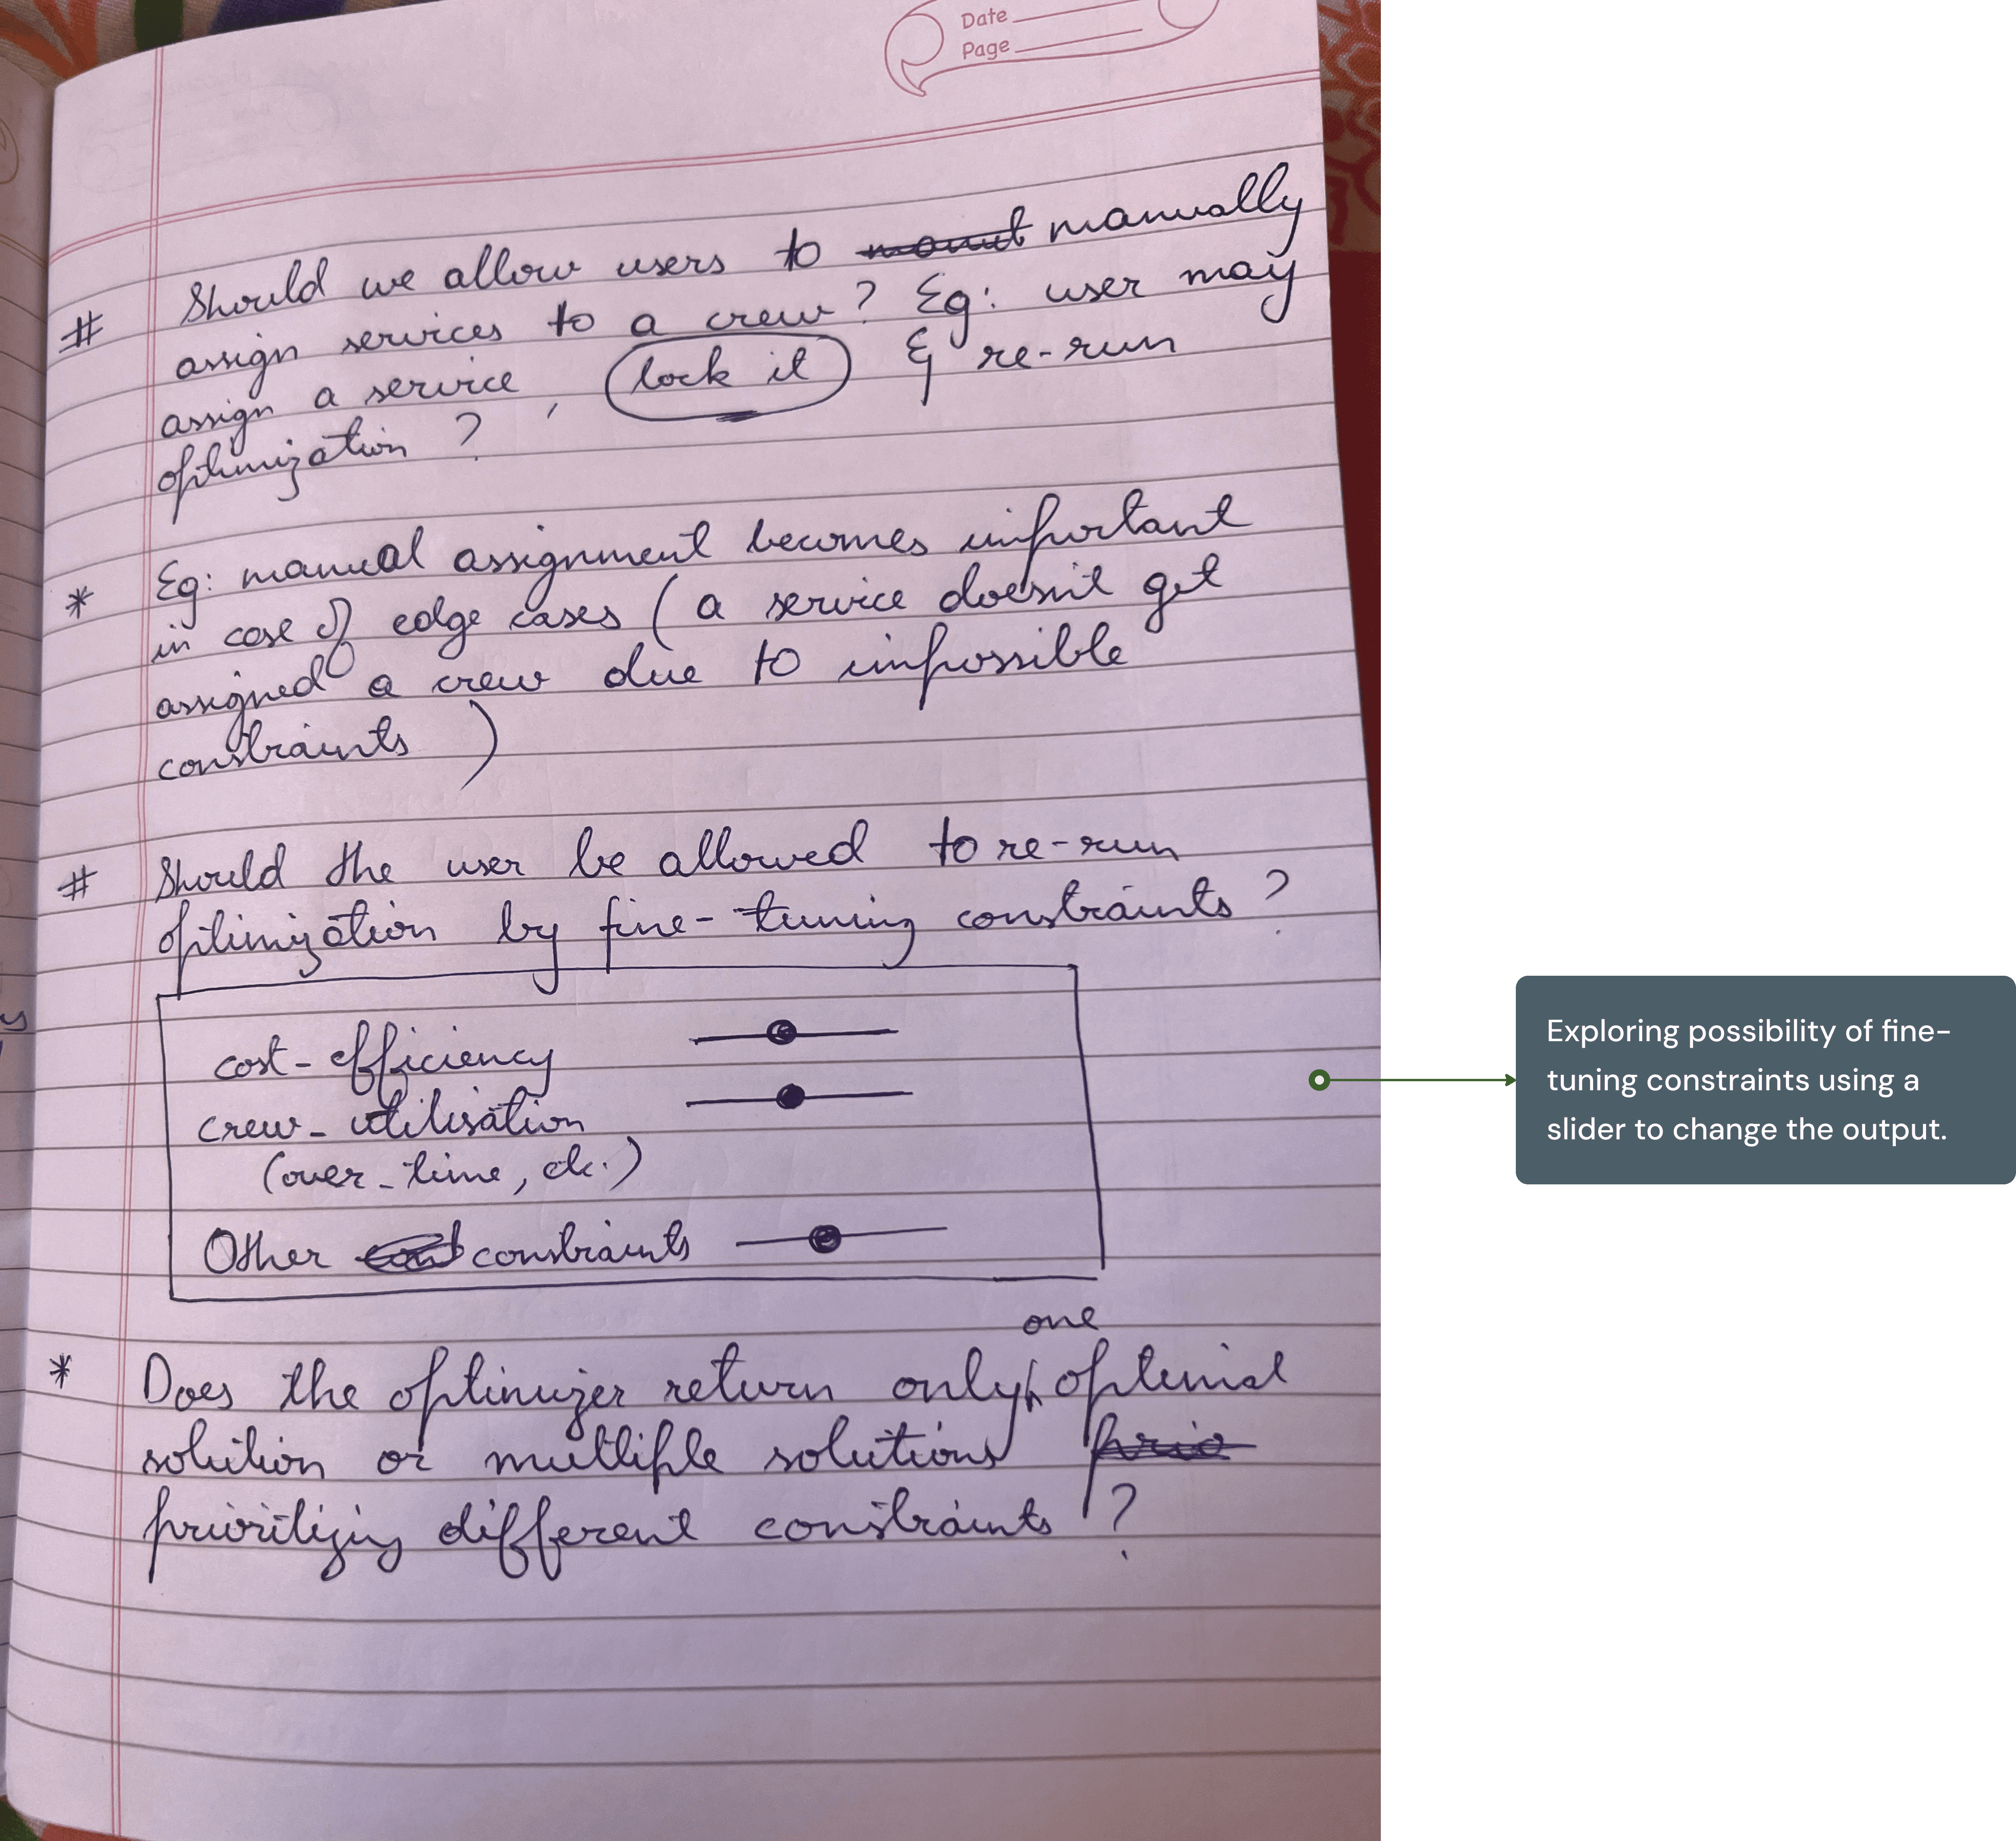 Date
Page
# Should we allow users to manually
assign services to a crew? Eg: user may
assign a service, lock it & re-run
optimization?
* Eg: manual assignment becomes important
in case of edge cases (a service doesn't get
assigned a crew due to impossible
constraints)
# Should the user be allowed to re-run
optimization by fine-tuning constraints?
cost-efficiency
crew-utilisation
(over-time, etc.)
Other constraints
one
* Does the optimizer return only optimal
solution or multiple solutions
prioritizing different constraints?
Exploring possibility of fine-
tuning constraints using a
slider to change the output.